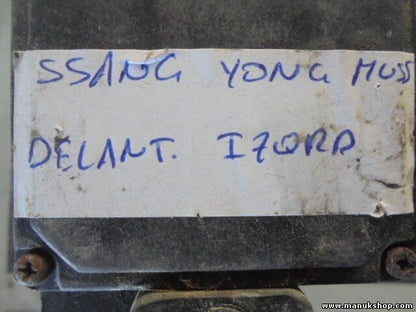 SSANG YONG MUSS
DELANT. IZQRD.
www.manukshop.com